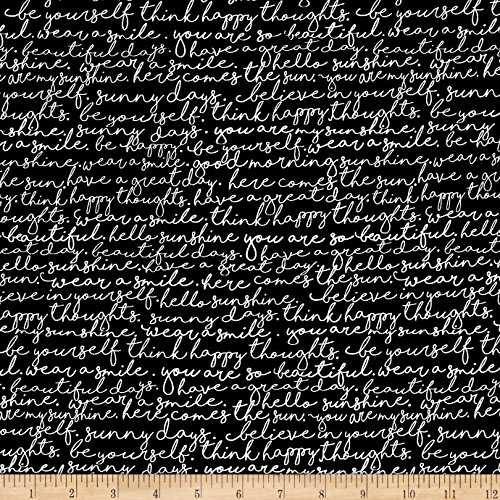 be yourself. think happy thoughts.
ul. wear a smile. you are so beautiful. wear a
y. beautiful days. have a great day.
nshine. wear a smile. hello sunshine.
are my sunshine. here comes the sun. you are my sunshine.
yourself. sunny days. believe in yourself. sunny
oughts. be yourself. think happy thoughts.
hine. sunny days. you are my sunshine. sunny day
r a smile. be happy. be yourself. wear a smile. be
nshine. wear a smile. good morning sunshine. wear a
he sun. have a great day. here comes the sun. have a g
y. think happy thoughts. have a great day. think happy tho
thoughts. wear a smile. think happy thoughts. wear a
beautiful. hello sunshine you are so beautiful. hello
at day. beautiful days. have a great day. beauti
ello sunshine. have great day. hello sunshine.
sun. wear a smile. here comes the sun. wear a s
lieve in yourself. hello sunshine. believe in yourself.
appy thoughts. sunny days. think happy thoughts.
e my sunshine. wear a smile. you are my sunshine.
be yourself. think happy thoughts. be yourself. think
ul. wear a smile. you are so beautiful. wear a
y. beautiful days. have a great day. beautiful
nshine. wear a smile. hello sunshine. wear a
are my sunshine. here comes the sun. you are my sunshine. here
yourself. sunny days. believe in yourself. sunny
oughts. be yourself. think happy thoughts. be
hine. sunny days. you are my sunshine. sunny day
1 2 3 4 5 6 7 8 9 10 11 12 13